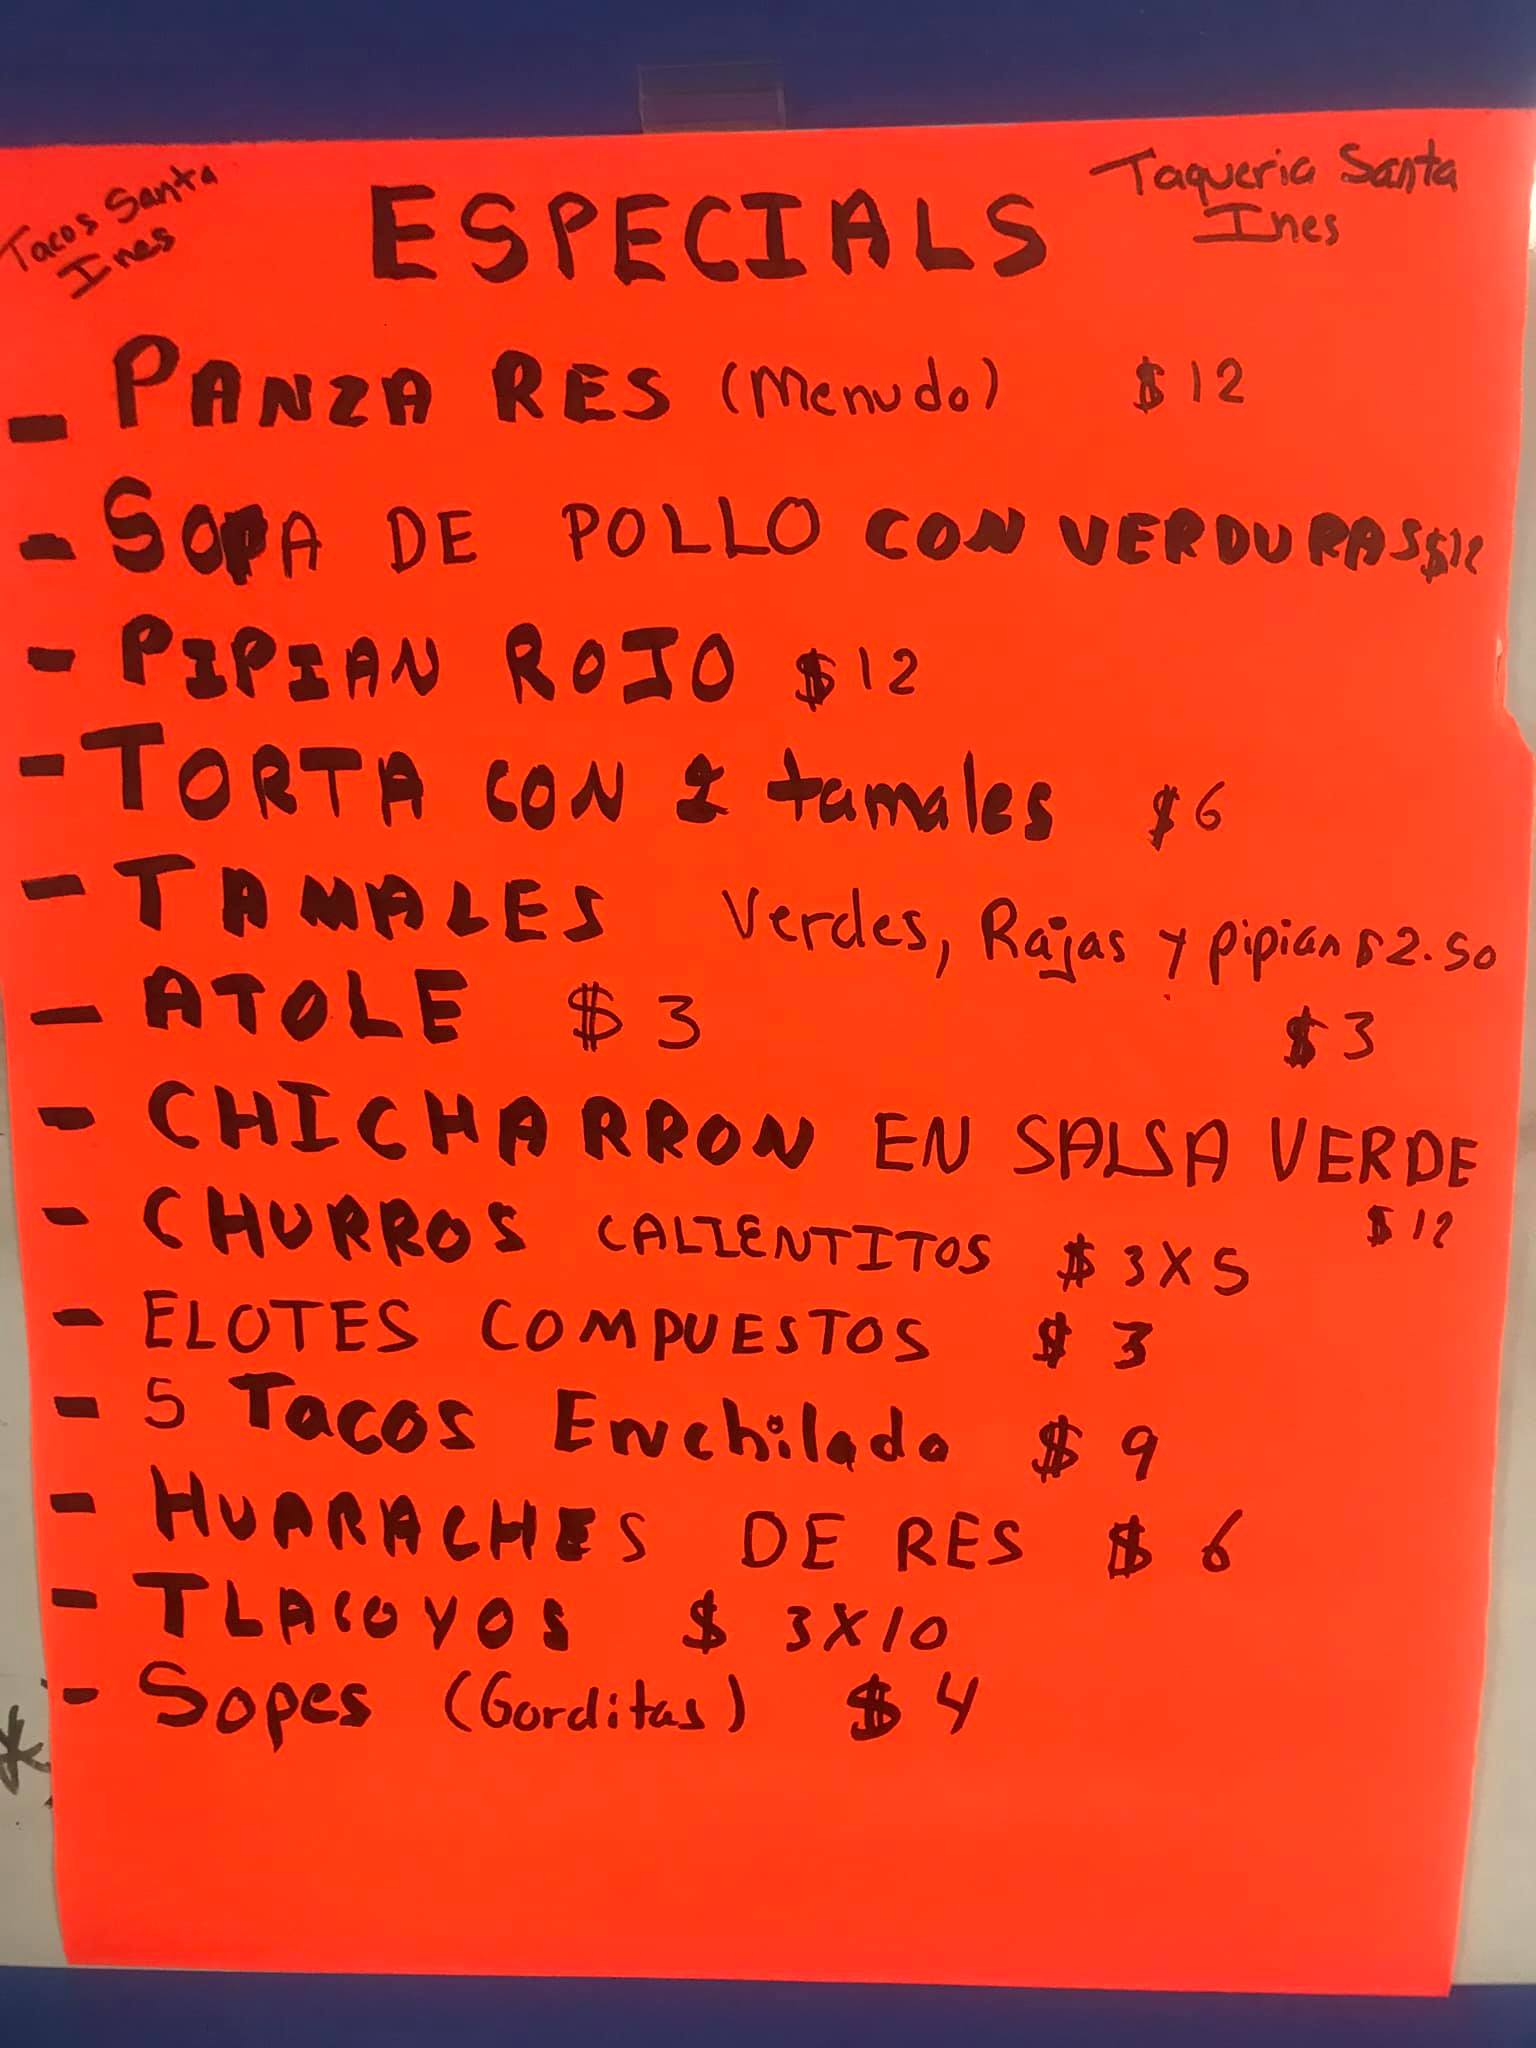 Tacos Santa
Ines
ESPECIALS
Taqueria Santa
Ines
- PANZA RES (Menudo) $12
- SOPA DE POLLO CON VERDURAS $12
- PIPIAN ROJO $12
- TORTA CON 2 tamales $6
- TAMALES Verdes, Rajas y pipian $2.50
- ATOLE $3 $3
- CHICHARRON EN SALSA VERDE
$12
- CHURROS CALIENTITOS $3X5
- ELOTES COMPUESTOS $3
- 5 Tacos Enchilado $9
- HUARACHES DE RES $6
- TLACOYOS $3X10
- Sopes (Gorditas) $4